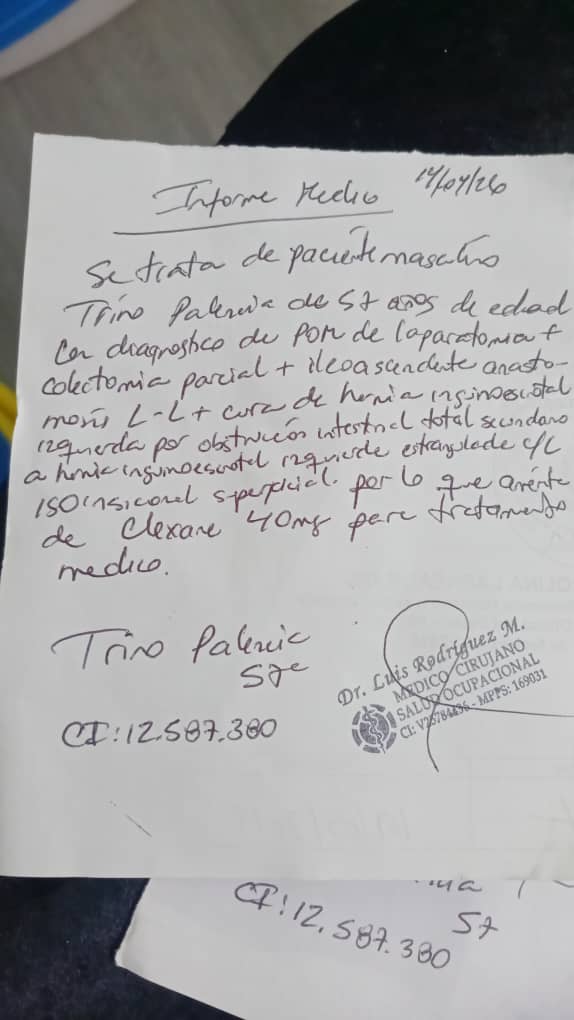 Informe Medico 14/04/26
Se trata de paciente masculino
Trino Palencia de 57 años de edad
con diagnostico de POM de laparatomia +
colectomia parcial + ileoascendente anasto-
mosis L-L + cura de hernia inguinoescrotal
izquierda por obstrucción intestinal total secundario
a hernia inguinoescrotal izquierda estrangulada c/c
ISO insicional superficial. por lo que amérite
de Clexane 40mg para tratamento
medico.
Trino Palencia
57a
CI: 12.587.380
Dr. Luis Rodríguez M.
MEDICO CIRUJANO
SALUD OCUPACIONAL
MPPS: 169031
57
CI: 12.587.380